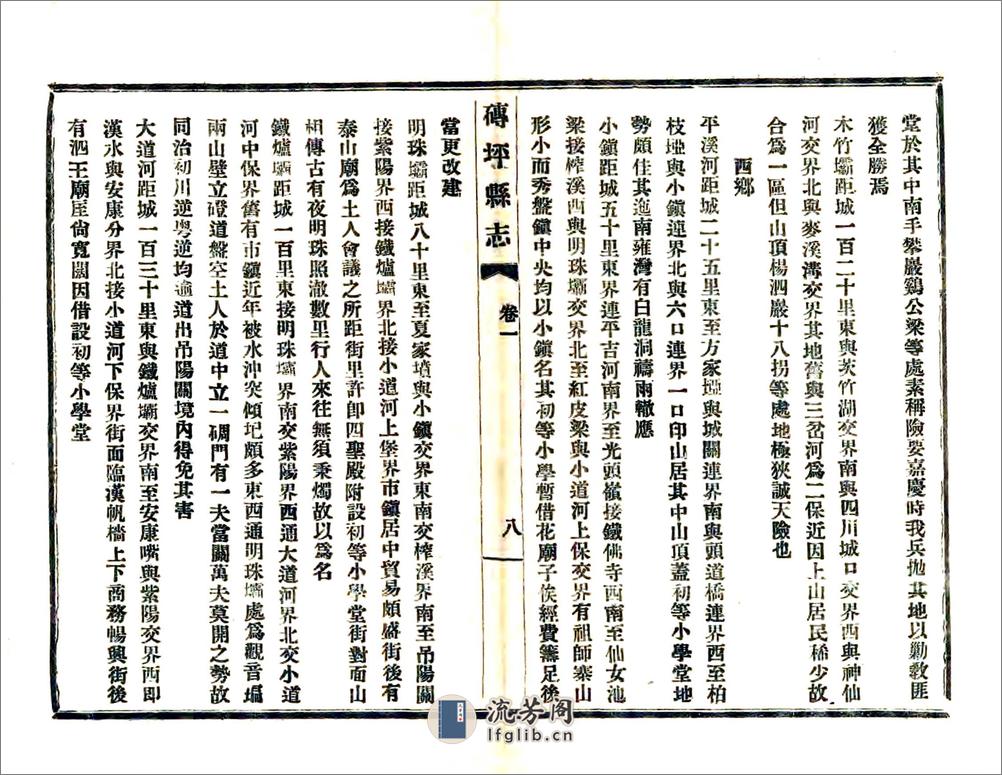 堂於其中南手攀巖鷄公梁等處素稱險要嘉慶時我兵抛其地以勦教匪
獲全勝焉
木竹壩距城一百二十里東與茨竹湖交界南與四川城口交界西與神仙
河交界北與麥溪溝交界其地舊與三岔河爲二保近因上山居民稀少故
合爲一區但山頂楊泗巖十八拐等處地極狹誠天險也
西鄉
平溪河距城二十五里東至方家埡與城關連界南與頭道橋連界西至柏
枝埡與小鎮連界北與六口連界一口印山居其中山頂蓋初等小學堂地
勢頗佳其迤南雍灣有白龍洞禱雨輙應
小鎮距城五十里東界連平吉河南界至光頭嶺接鐵佛寺西南至仙女池
梁接榨溪西與明珠壩交界北至紅皮梁與小道河上保交界有祖師寨山
形小而秀盤鎮中央均以小鎮名其初等小學暫借花廟子俟經費籌足後
磚坪縣志
卷一
八
當更改建
明珠壩距城八十里東至夏家墳與小鎮交界東南交榨溪界南至吊陽關
接紫陽界西接鐵爐壩界北接小道河上堡界市鎮居中貿易頗盛街後有
泰山廟爲土人會議之所距街里許卽四聖殿附設初等小學堂街對面山
相傳古有夜明珠照澈數里行人來往無須秉燭故以爲名
鐵爐壩距城一百里東接明珠壩界南交紫陽界西通大道河界北交小道
河中保界舊有市鎮近年被水沖突傾圮頗多東西通明珠壩處爲觀音塥
兩山壁立磴道盤空土人於道中立一碉門有一夫當關萬夫莫開之勢故
同治初川逆粵逆均逾道出吊陽關境內得免其害
大道河距城一百三十里東與鐵爐壩交界南至安康嘴與紫陽交界西即
漢水與安康分界北接小道河下保界街面臨漢帆檣上下商務暢興街後
有泗王廟屋尙寬闊因借設初等小學堂
流芳阁
lfglib.cn